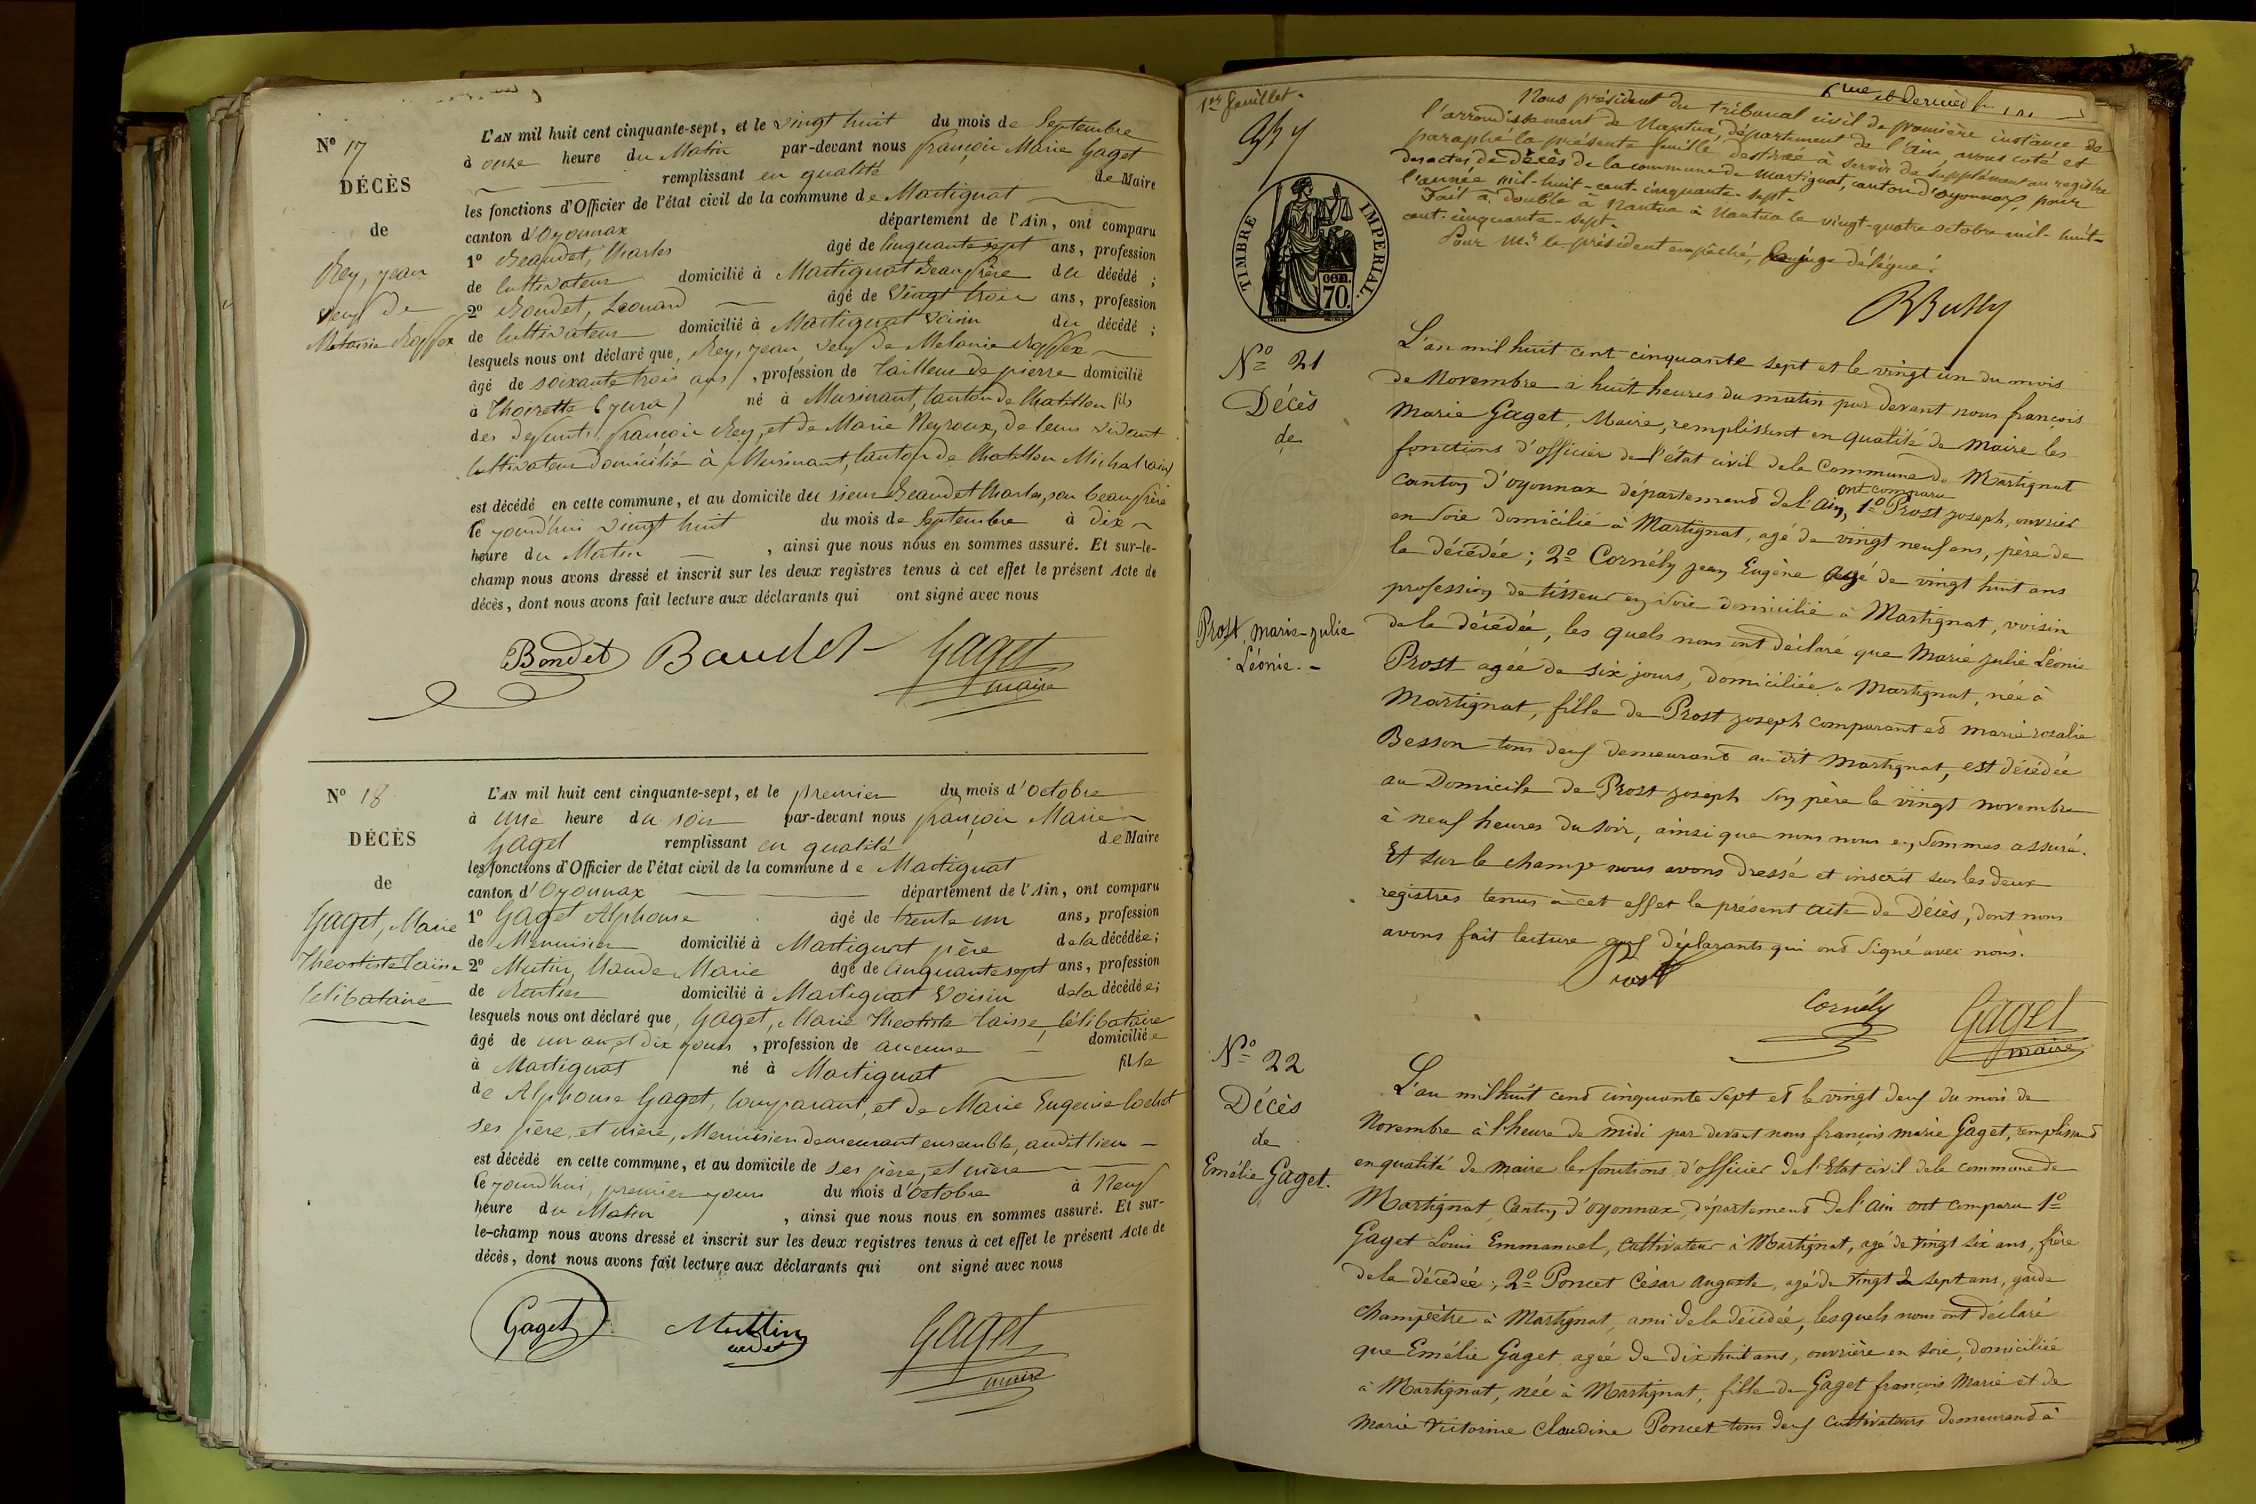 N° 17
DÉCÈS
de
Rey, Jean
veuf de
Melanie
L'AN mil huit cent cinquante-sept, et le vingt huit du mois de Septembre
à onze heure du Matin par-devant nous françois Marie Gaget
remplissant en qualité de Maire
les fonctions d'Officier de l'état civil de la commune de Martignat
canton d'Oyonnax département de l'Ain, ont comparu
1° Beaudet, Charles âgé de Cinquante sept ans, profession
de Cultivateur domicilié à Martignat Beau frère du décédé ;
2° Bondet, Léonard âgé de Vingt trois ans, profession
de Cultivateur domicilié à Martignat voisin du décédé ;
lesquels nous ont déclaré que, Rey, Jean veuf de Melanie
âgé de soixante trois ans, profession de tailleur de pierre domicilié
à Thoirette (Jura) né à Mursinant, Canton de Chatillon fils
des defunts françois Rey, et de Marie Neyroux, de leur vivant
Cultivateur domicilié à Mursinant, Canton de Chatillon Michaille
est décédé en cette commune, et au domicile du sieur Beaudet Charles, son beau frère
le jourd'hui vingt huit du mois de Septembre à dix
heure du Matin, ainsi que nous nous en sommes assuré. Et sur-le-
champ nous avons dressé et inscrit sur les deux registres tenus à cet effet le présent Acte de
décès, dont nous avons fait lecture aux déclarants qui ont signé avec nous
Bondet Baudet Gaget
maire
N° 18
DÉCÈS
de
Gaget, Marie
Theotiste Laïsse
Célibataire
L'AN mil huit cent cinquante-sept, et le premier du mois d'Octobre
à une heure du soir par-devant nous françois Marie
Gaget remplissant en qualité de Maire
les fonctions d'Officier de l'état civil de la commune de Martignat
canton d'Oyonnax département de l'Ain, ont comparu
1° Gaget Alphonse âgé de trente un ans, profession
de Menuisier domicilié à Martignat père de la décédée ;
2° Mutin, Claude Marie âgé de Cinquante sept ans, profession
de Rentier domicilié à Martignat Voisin de la décédée ;
lesquels nous ont déclaré que, Gaget, Marie Theotiste Laisse, Célibataire
âgé de un an, et dix jours, profession de aucune domiciliée
à Martignat né à Martignat fille
de Alphonse Gaget, Comparant, et de Marie Eugenie Cochet
ses père, et mère, Menuisier demeurant ensemble, audit lieu
est décédé en cette commune, et au domicile de ses père, et mère
le jourd'hui premier jour du mois d'Octobre à Neuf
heure du Matin, ainsi que nous nous en sommes assuré. Et sur-
le-champ nous avons dressé et inscrit sur les deux registres tenus à cet effet le présent Acte de
décès, dont nous avons fait lecture aux déclarants qui ont signé avec nous
Gaget Muttin Gaget
cadet maire
1er feuillet.
6me et dernier f
Nous président du tribunal civil de première instance de
l'arrondissement de Nantua, département de l'Ain avons coté et
paraphé la présente feuille destinée à servir de supplément au registre
des actes de Décès de la commune de Martignat, canton d'Oyonnax, pour
l'année mil-huit-cent-cinquante-sept.
Fait à double à Nantua à Nantua le vingt-quatre octobre mil-huit-
cent-cinquante-sept.
Pour Mr le président empêché, le juge délégué.
TIMBRE IMPERIAL.
CEN.
70.
N° 21
Décès
de
Prost, marie-julie
Léonie.
L'an mil huit cent cinquante sept et le vingt un du mois
de Novembre à huit heures du matin par devant nous françois
Marie Gaget, Maire, remplissent en qualité de maire les
fonctions d'officier de l'état civil de la Commune de Martignat
canton d'oyonnax département de l'ain, ont comparu 1° Prost joseph, ouvrier
en soie domicilié à Martignat, agé de vingt neuf ans, père de
la décédée ; 2° Cornély jean Eugène agé de vingt huit ans
profession de tisseur en soie domicilié à Martignat, voisin
de la décédée, les quels nous ont déclaré que Marie julie Léonie
Prost agéé de six jours, domiciliée à martignat, née à
Martignat, fille de Prost joseph comparant et marie rosalie
Besson tous deux demeurant au dit martignat, est décédée
au Domicile de Prost joseph son père le vingt novembre
à neuf heures du soir, ainsi que nous nous en sommes assuré.
Et sur le champ nous avons dressé et inscrit sur les deux
registres tenus à cet effet le présent acte de Décès, dont nous
avons fait lecture aux déclarants qui ont signé avec nous.
Prost
Cornély Gaget
maire
N° 22
Décès
de
Emélie Gaget.
L'an mil huit cent cinquante sept et le vingt deux du mois de
Novembre à l'heure de midi par devant nous françois marie Gaget, remplissant
en qualité de maire les fonctions d'officier de l'Etat civil de la commune de
Martignat, Canton d'oyonnax, département de l'ain ont comparu 1°
Gaget Louis Emmanuel, cultivateur à Martignat, agé de vingt six ans, frère
de la décédée ; 2° Poncet César auguste, agé de vingt sept ans, garde
champêtre à Martignat, ami de la décédée, lesquels nous ont déclaré
que Emélie Gaget agée de dix huit ans, ouvrière en soie, domiciliée
à Martignat, née à Martignat, fille de Gaget françois Marie et de
Marie Victorine Claudine Poncet tous deux cultivateurs demeurant à